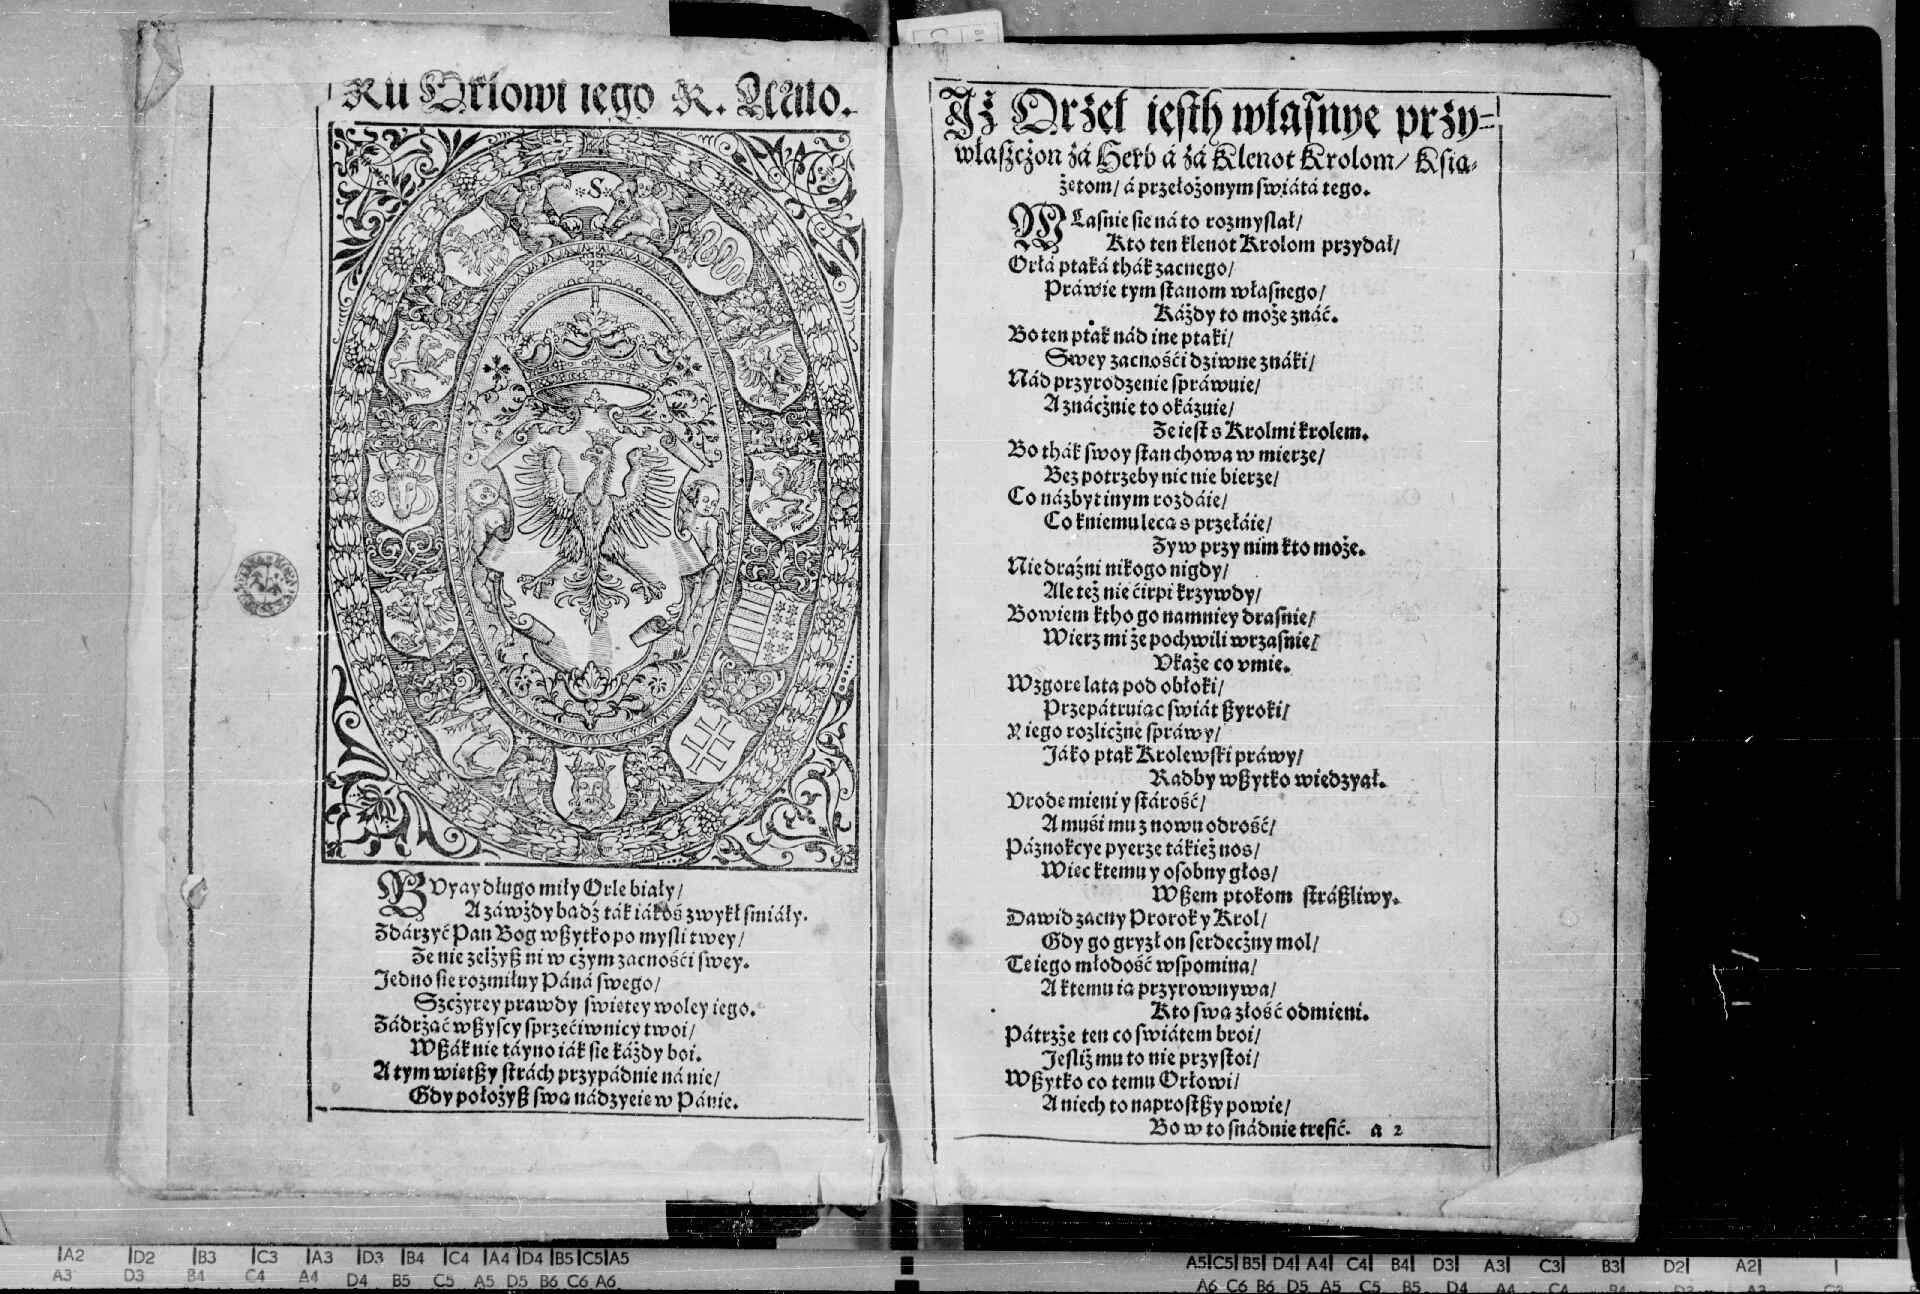 Ku Orłowi iego K. Miło.
*S*
BUyay długo miły Orle biały/
A záwżdy bądź ták iákoś zwykł smiáły.
Zdárzyć Pan Bog wßytko po mysli twey/
Że nie zelżyß ni w cżym zacnośći swey.
Jedno sie rozmiłuy Páná swego/
Szcżyrey prawdy swietey woley iego.
Zádrżąć wßyscy sprzećiwnicy twoi/
Wßák nie táyno iák sie káżdy boi.
A tym wietßy strách przypádnie ná nie/
Gdy położyß swą nádzyeię w Pánie.
Jż Orżeł iesth własnye przy=
właszcżon zá Herb á zá Klenot Krolom/ Ksią-
żętom/ á przełożonym swiátá tego.
WŁasnie sie ná to rozmyslał/
Kto ten klenot Krolom przydał/
Orłá ptaká thák zacnego/
Práwie tym stanom własnego/
Káżdy to może znáć.
Bo ten ptak nád ine ptaki/
Swey zacnośći dziwne znáki/
Nád przyrodzenie spráwuie/
A znácżnie to okázuie/
Że iest s Krolmi krolem.
Bo thák swoy stan chowa w mierze/
Bez potrzeby nic nie bierze/
Co názbyt inym rozdáie/
Co k niemu lecą s przełáie/
Żyw przy nim kto może.
Nie draźni nikogo nigdy/
Ale też nie ćirpi krzywdy/
Bowiem ktho go namniey drasnie/
Wierz mi że pochwili wrzasnie/
Ukaże co vmie.
Wzgore lata pod obłoki/
Przepátruiąc swiát ßyroki/
Y iego rozlicżne spráwy/
Jáko ptak Krolewski práwy/
Radby wßytko wiedzyał.
Urode mieni y stárość/
A muśi mu z nowu odrość/
Páznokcye pyerze tákież nos/
Więc k temu y osobny głos/
Wßem ptokom stráßliwy.
Dawid zacny Prorok y Krol/
Gdy go gryzł on serdecżny mol/
Te iego młodość wspomina/
A k temu ią przyrownywa/
Kto swą złość odmieni.
Pátrzże ten co swiátem broi/
Jesliż mu to nie przystoi/
Wßytko co temu Orłowi/
A niech to naprostßy powie/
Bo w to snádnie trefić. a 2
A2 D2 B3 C3 A3 D3 B4 C4 A4 D4 B5 C5 A5
A3 D3 B4 C4 A4 D4 B5 C5 A5 D5 B6 C6 A6
A5 C5 B5 D4 A4 C4 B4 D3 A3 C3 B3 D2 A2
A6 C6 B6 D5 A5 C5 B5 D4 A4 C4 B4 D3 A3 C3